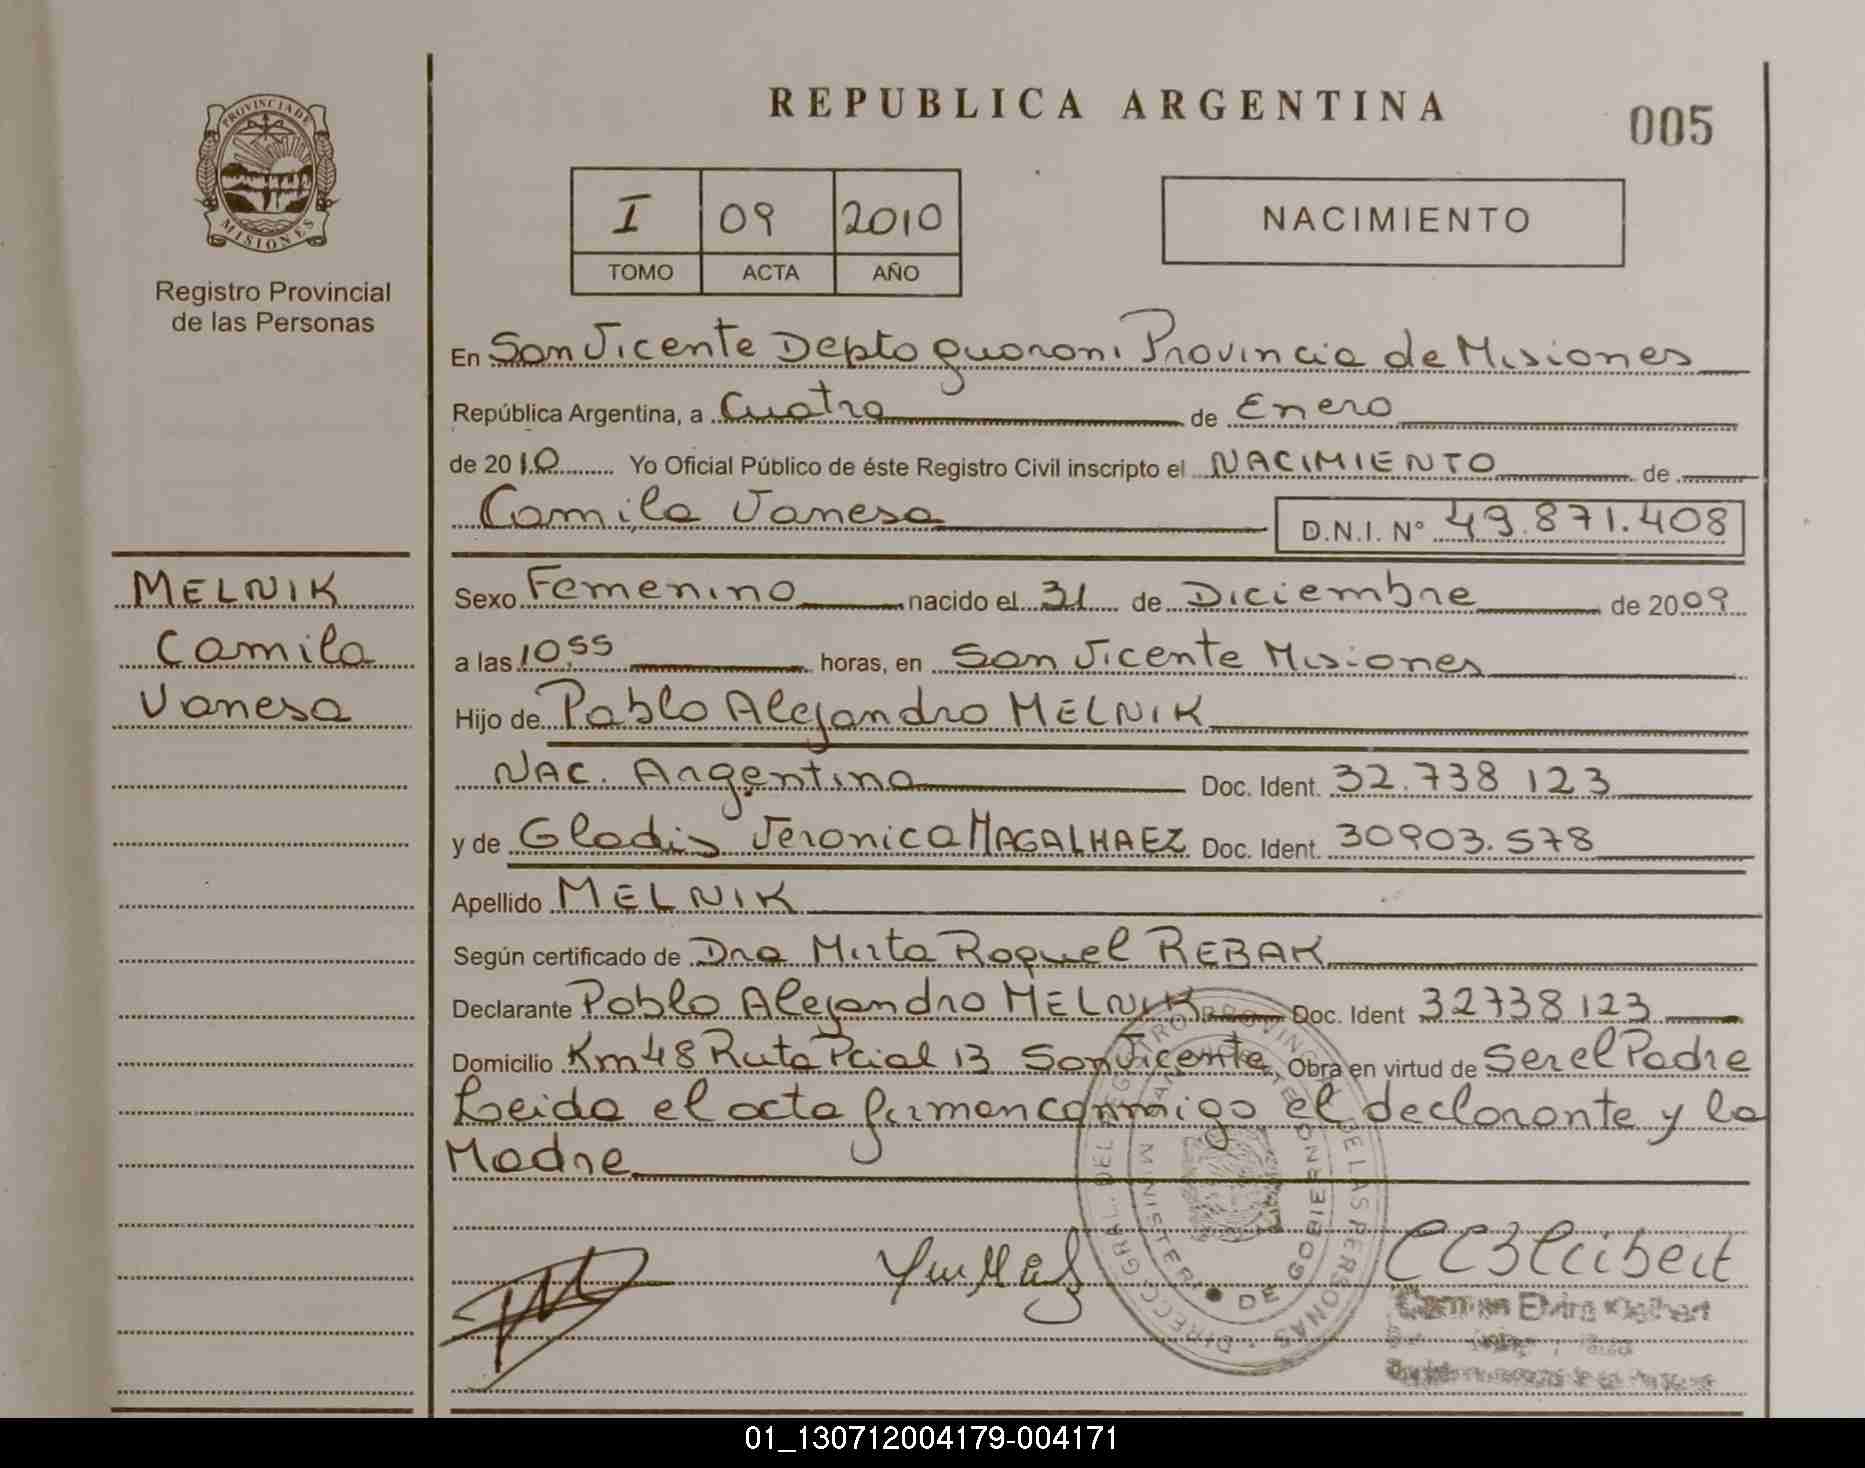 REPUBLICA ARGENTINA
005
PROVINCIA DE MISIONES
Registro Provincial
de las Personas
I 09 2010
TOMO ACTA AÑO
NACIMIENTO
En San Vicente Depto guarani Provincia de Misiones
República Argentina, a Cuatro de Enero
de 2010 Yo Oficial Público de éste Registro Civil inscripto el NACIMIENTO de
Camila Vanesa D.N.I. N° 49.871.408
MELNIK
Camila
Vanesa
Sexo Femenino nacido el 31 de Diciembre de 2009
a las 10,55 horas, en San Vicente Misiones
Hijo de Pablo Alejandro MELNIK
NAC. Argentina Doc. Ident. 32.738 123
y de Gladis Veronica MAGALHAEZ Doc. Ident. 30903.578
Apellido MELNIK
Según certificado de Dra Mirta Raquel REBAK
Declarante Pablo Alejandro MELNIK Doc. Ident 32738123
Domicilio Km 48 Ruta Pcial 13 San Vicente Obra en virtud de Ser el Padre
Leida el acta firman conmigo el declarante y la
Madre
DIRECC. GRAL. DEL REGISTRO PROVINCIAL DE LAS PERSONAS
MINISTERIO DE GOBIERNO
01_130712004179-004171